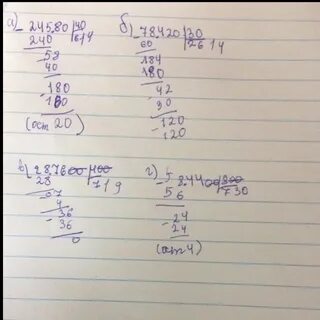 а) 24580 | 40
240 | 614
58
40
180
160
(ост 20)
б) 78420 | 30
60 | 2614
184
180
42
30
120
120
в) 287600 | 400
28 | 719
07
4
36
36
0
г) 524400 | 800
56 | 730
24
24
(ост 4)